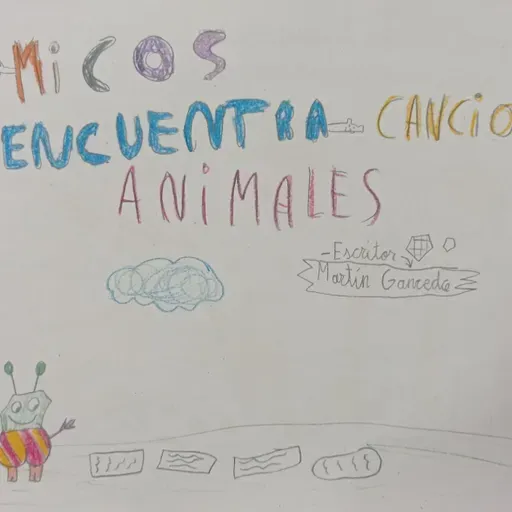 MiCOS
ENCUENTRA CANCIO
ANiMALES
-Escritor
Martín Gancedo